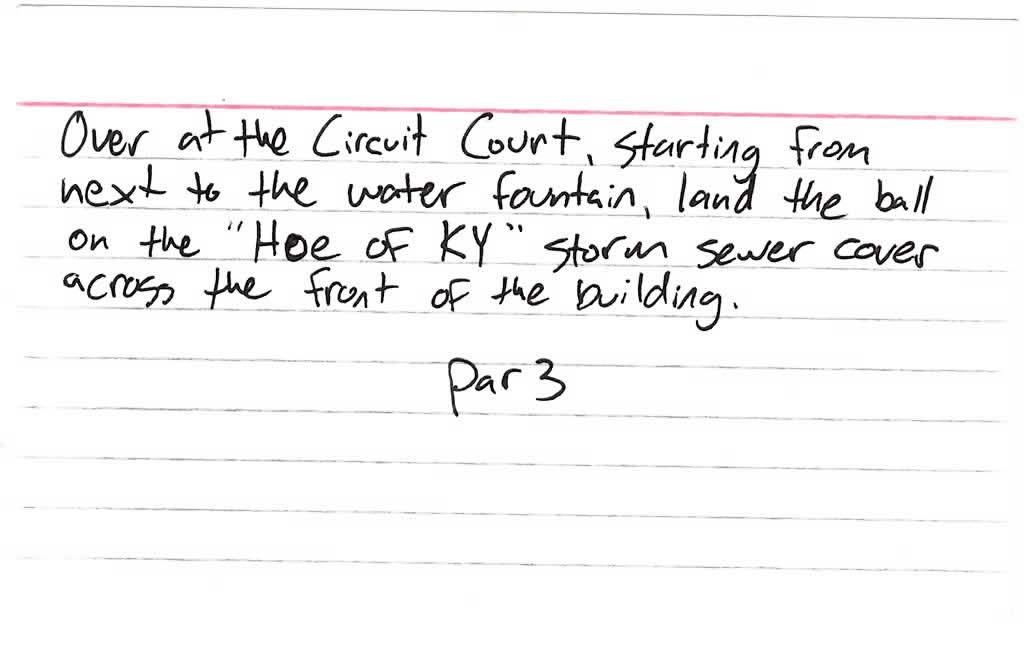 Over at the Circuit Court, starting from
next to the water fountain, land the ball
on the "Hoe of KY" storm sewer cover
across the front of the building.
Par 3